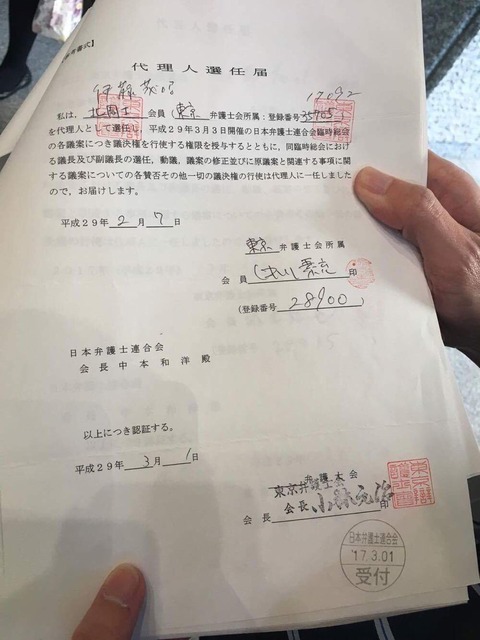 書式】
代理人選任届
伊藤茂昭 17092
私は、北岡士会員（東京弁護士会所属：登録番号35705）
を代理人として選任し、平成29年3月3日開催の日本弁護士連合会臨時総会
の各議案につき議決権を行使する権限を授与するとともに、同臨時総会
における議長及び副議長の選任、動議、議案の修正並びに原議案と関連する事項に関
する議案についての各賛否その他一切の議決権の行使は代理人に一任しました
ので、お届けします。
平成29年2月7日
東京弁護士会所属
会員 印
（登録番号28900）
日本弁護士連合会
会長中本和洋殿
以上につき認証する。
平成29年3月1日
東京弁護士会
会長 小林元治 印
日本弁護士連合会
'17.3.01
受付